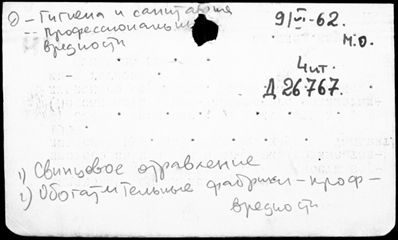 ⊙ - Гигиена и санитария
-- Профессиональные
вредности
9/VI-62.
М.О.
4ит.
Д 26767.
1) Свинцовое отравление
2) Обогатительные фабрики-проф-
вредности